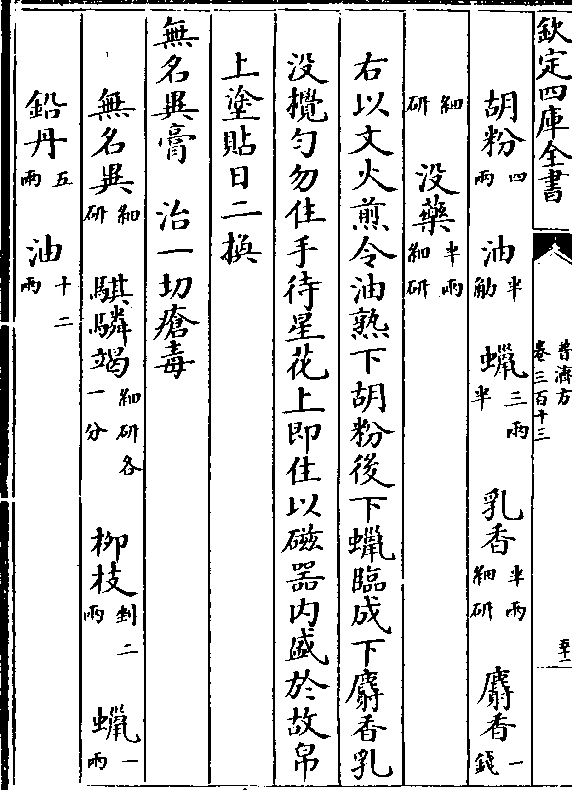 欽定四庫全書
普濟方
卷三百十三
五十二
胡粉四兩 油半觔 蠟三兩半 乳香半兩細研 麝香一錢
細研 没藥半兩細研
右以文火煎令油熟下胡粉後下蠟臨成下麝香乳
没攪勻勿住手待星花上即住以磁器内盛於故帛
上塗貼日二換
無名異膏 治一切瘡毒
無名異細研 騏驎竭細研各一分 柳枝剉二兩 蠟一兩
鉛丹五兩 油十二兩